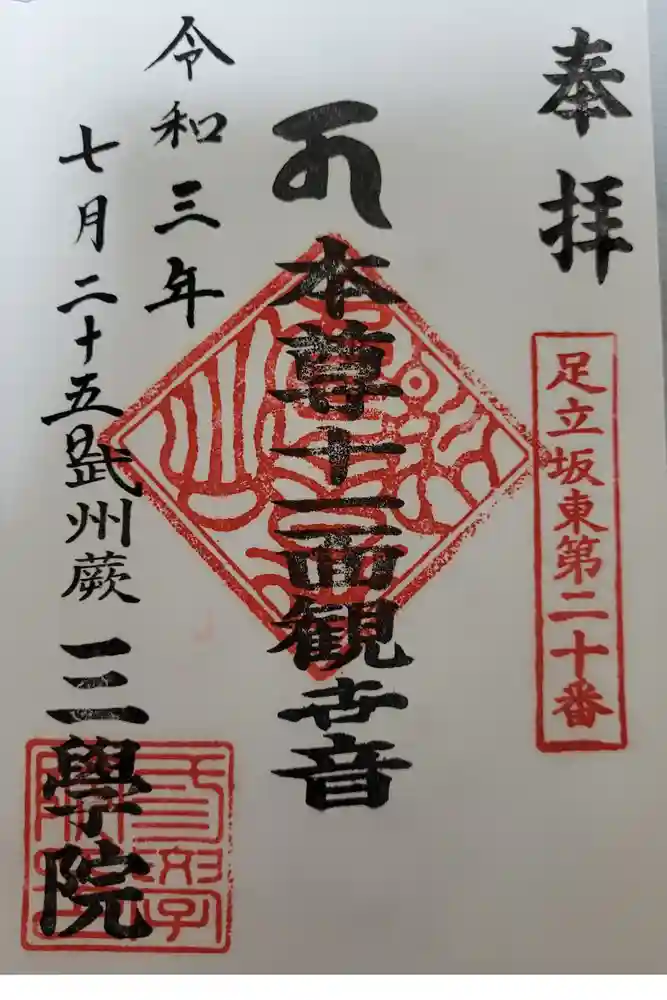 奉拝
足立坂東第二十番
本尊十一面観世音
令和三年
七月二十五日武州蕨
三學院